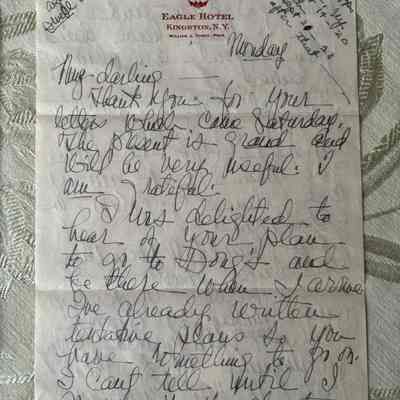 EAGLE HOTEL
KINGSTON, N.Y.
Monday
My darling
Thank you for your
letter which came Saturday.
The present is grand and
will be very useful. I
am grateful.
I was delighted to
hear of your plan
to go to Doug's and
be there when I arrive
I've already written
tentative plans so you
have something to go on.
I can't tell until I